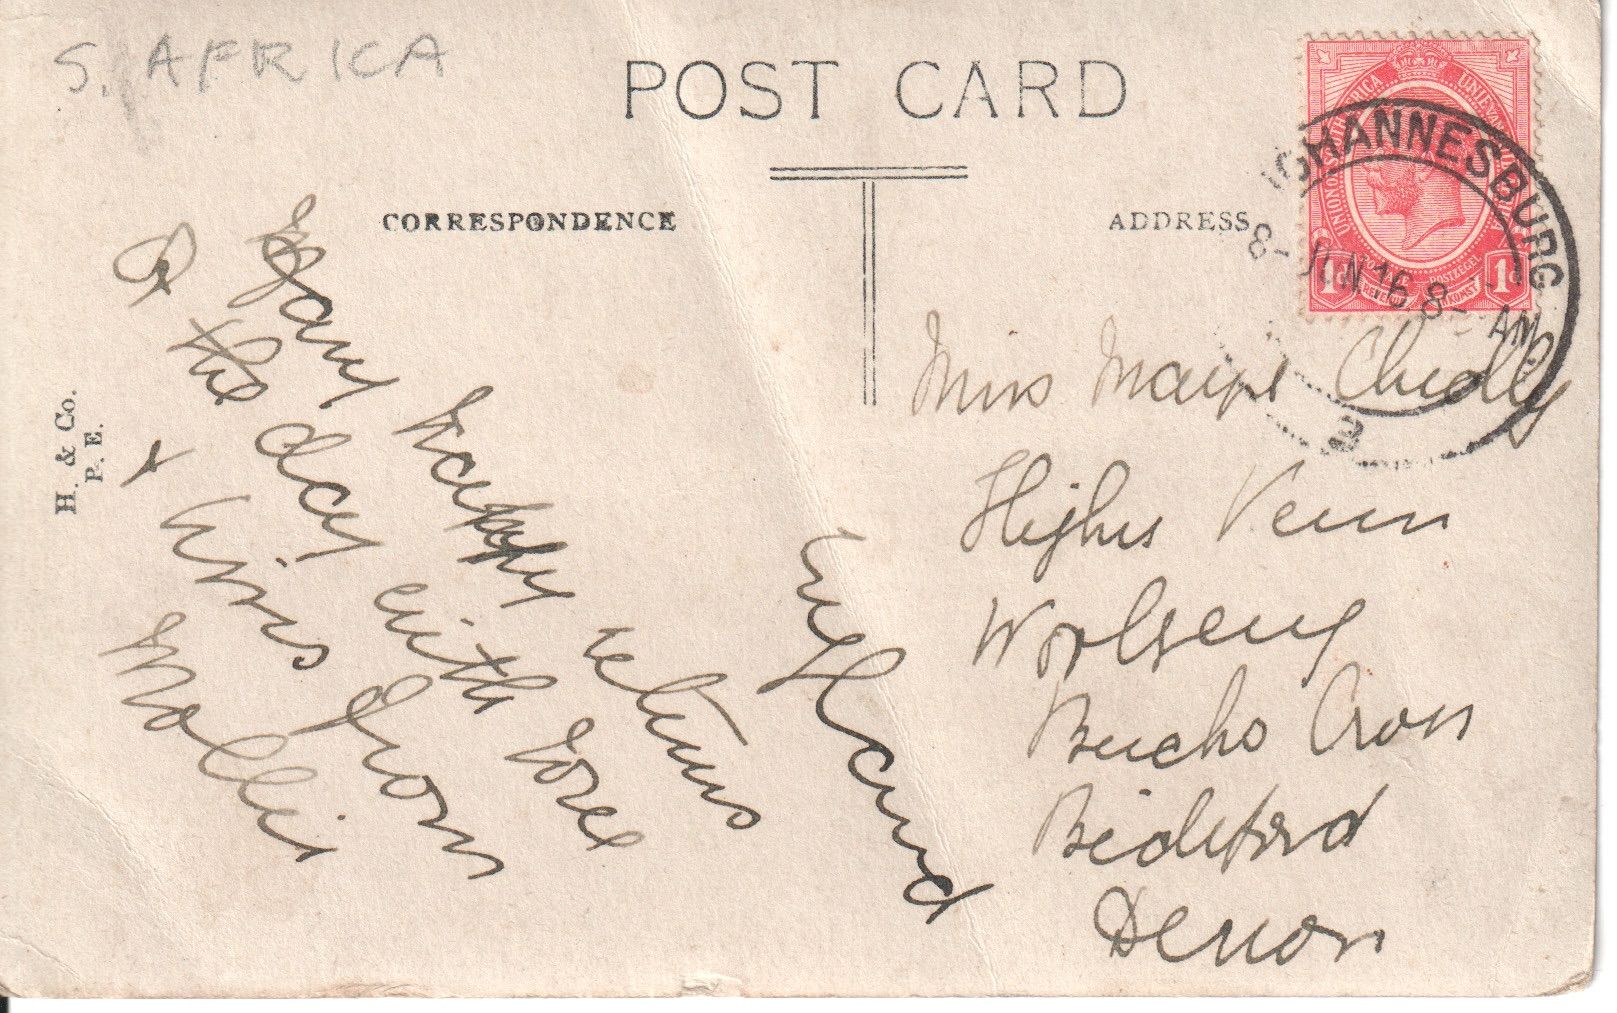 S. AFRICA
POST CARD
CORRESPONDENCE
ADDRESS
UNION OF SOUTH AFRICA
UNIE VAN ZUID AFRIKA
POSTAGE POSTZEGEL
REVENUE INKOMST
1d 1d
JOHANNESBURG
8 - JUN 16 8 - AM
H. & Co.
P. E.
Many happy returns
of the day with love
& kiss from
Mollie
England
Miss Chudley
Venn
Woolsery
Bucks Cross
Bideford
Devon